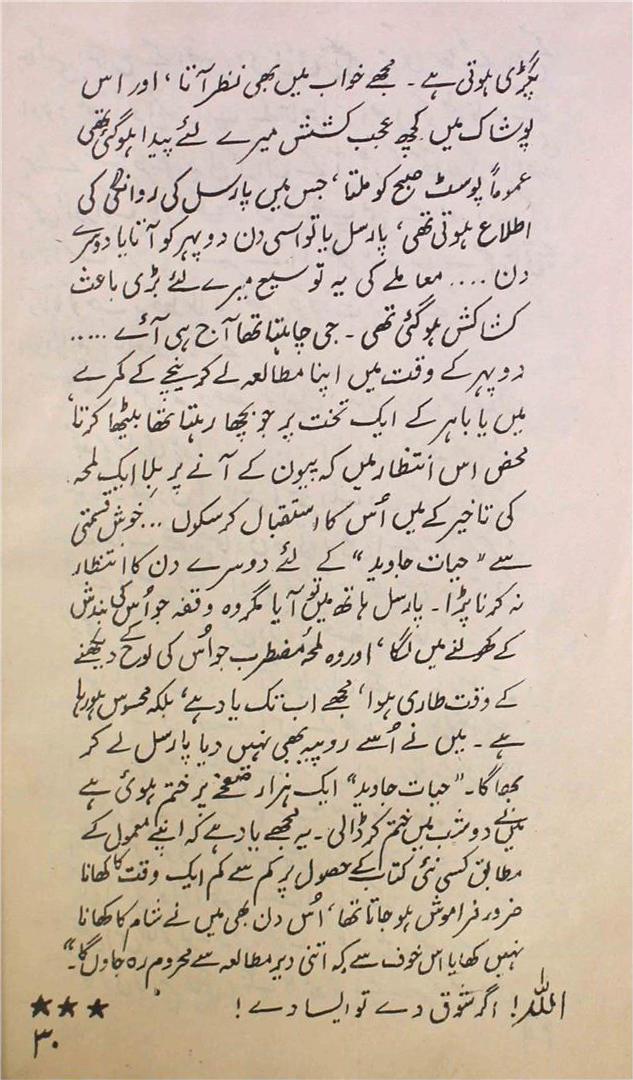 پگڑی ہوتی ہے ۔ مجھے خواب میں بھی نظر آتا ، اور اس
پوشاک میں کچھ عجب کشش میرے لئے پیدا ہوگئی تھی
عموماً پوسٹ صبح کو ملتا ، جس میں پارسل کی روانگی کی
اطلاع ہوتی تھی ، پارسل یا تو اسی دن دوپہر کو آتا یا دوسرے
دن .... معاملے کی یہ توسیع میرے لئے بڑی باعث
کشاکش ہوگئی تھی ۔ جی چاہتا تھا آج ہی آئے .....
دوپہر کے وقت میں اپنا مطالعہ لے کر نیچے کے کمرے
میں یا باہر کے ایک تخت پر جو بچھا رہتا تھا بیٹھا کرتا ،
محض اس انتظار میں کہ پیون کے آنے پر بلا ایک لمحہ
کی تاخیر کے میں اُس کا استقبال کر سکوں ... خوش قسمتی
سے "حیات جاوید" کے لئے دوسرے دن کا انتظار
نہ کرنا پڑا ۔ پارسل ہاتھ میں تو آیا مگر وہ وقفہ جو اُس کی بندش
کے کھولنے میں لگا ، اور وہ لمحۂ مضطرب جو اُس کی لوح کے دیکھنے
کے وقت طاری ہوا ، مجھے اب تک یاد ہے ، بلکہ محسوس ہو رہا
ہے ۔ میں نے اُسے روپیہ بھی نہیں دیا پارسل لے کر
بھاگا ۔ "حیات جاوید" ایک ہزار صفحے پر ختم ہوئی ہے
میں نے دو شب میں ختم کر ڈالی ۔ یہ مجھے یاد ہے کہ اپنے معمول کے
مطابق کسی نئی کتاب کے حصول پر کم سے کم ایک وقت کا کھانا
ضرور فراموش ہو جاتا تھا ، اُس دن بھی میں نے شام کا کھانا
نہیں کھایا اس خوف سے کہ اتنی دیر مطالعہ سے محروم رہ جاوں گا ۔"
اللہ ! اگر شوق دے تو ایسا دے !
★ ★ ★
۳۰